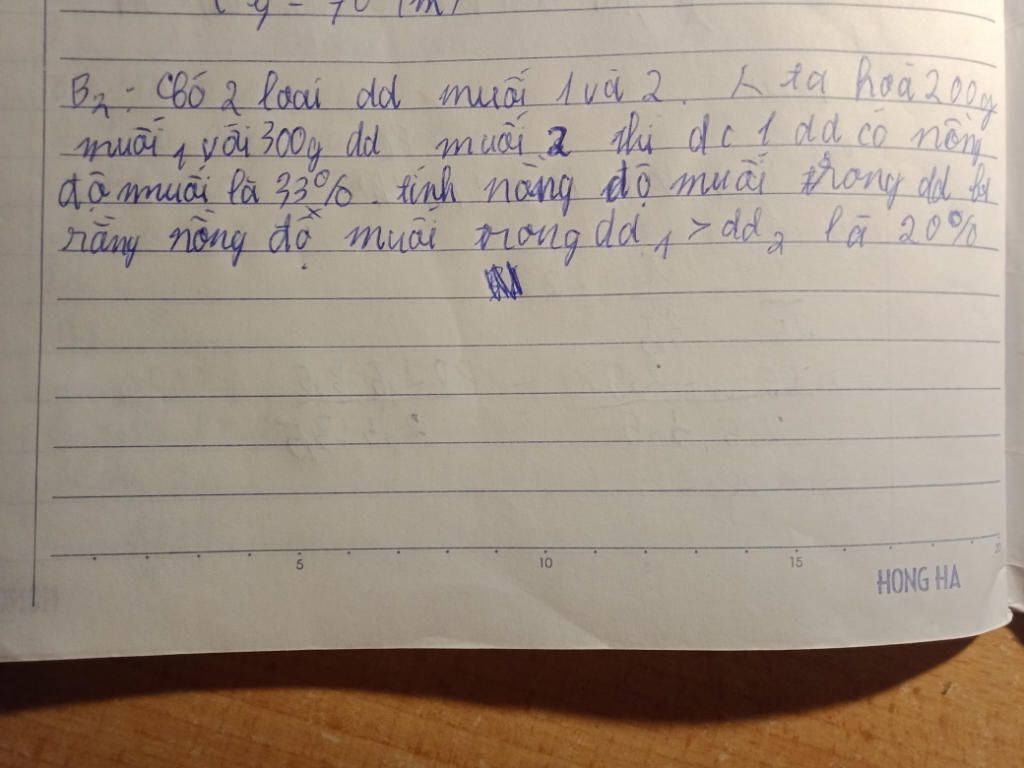 y = 70 (m)
B2: Có 2 loại dd muối 1 và 2. ta hoà 200g
muối 1 với 300g dd muối 2 thì dc 1 dd có nồng
độ muối là 33%. tính nồng độ muối trong dd
rằng nồng độ muối trong dd1 > dd2 là 20%
5 10 15 20
HONG HA